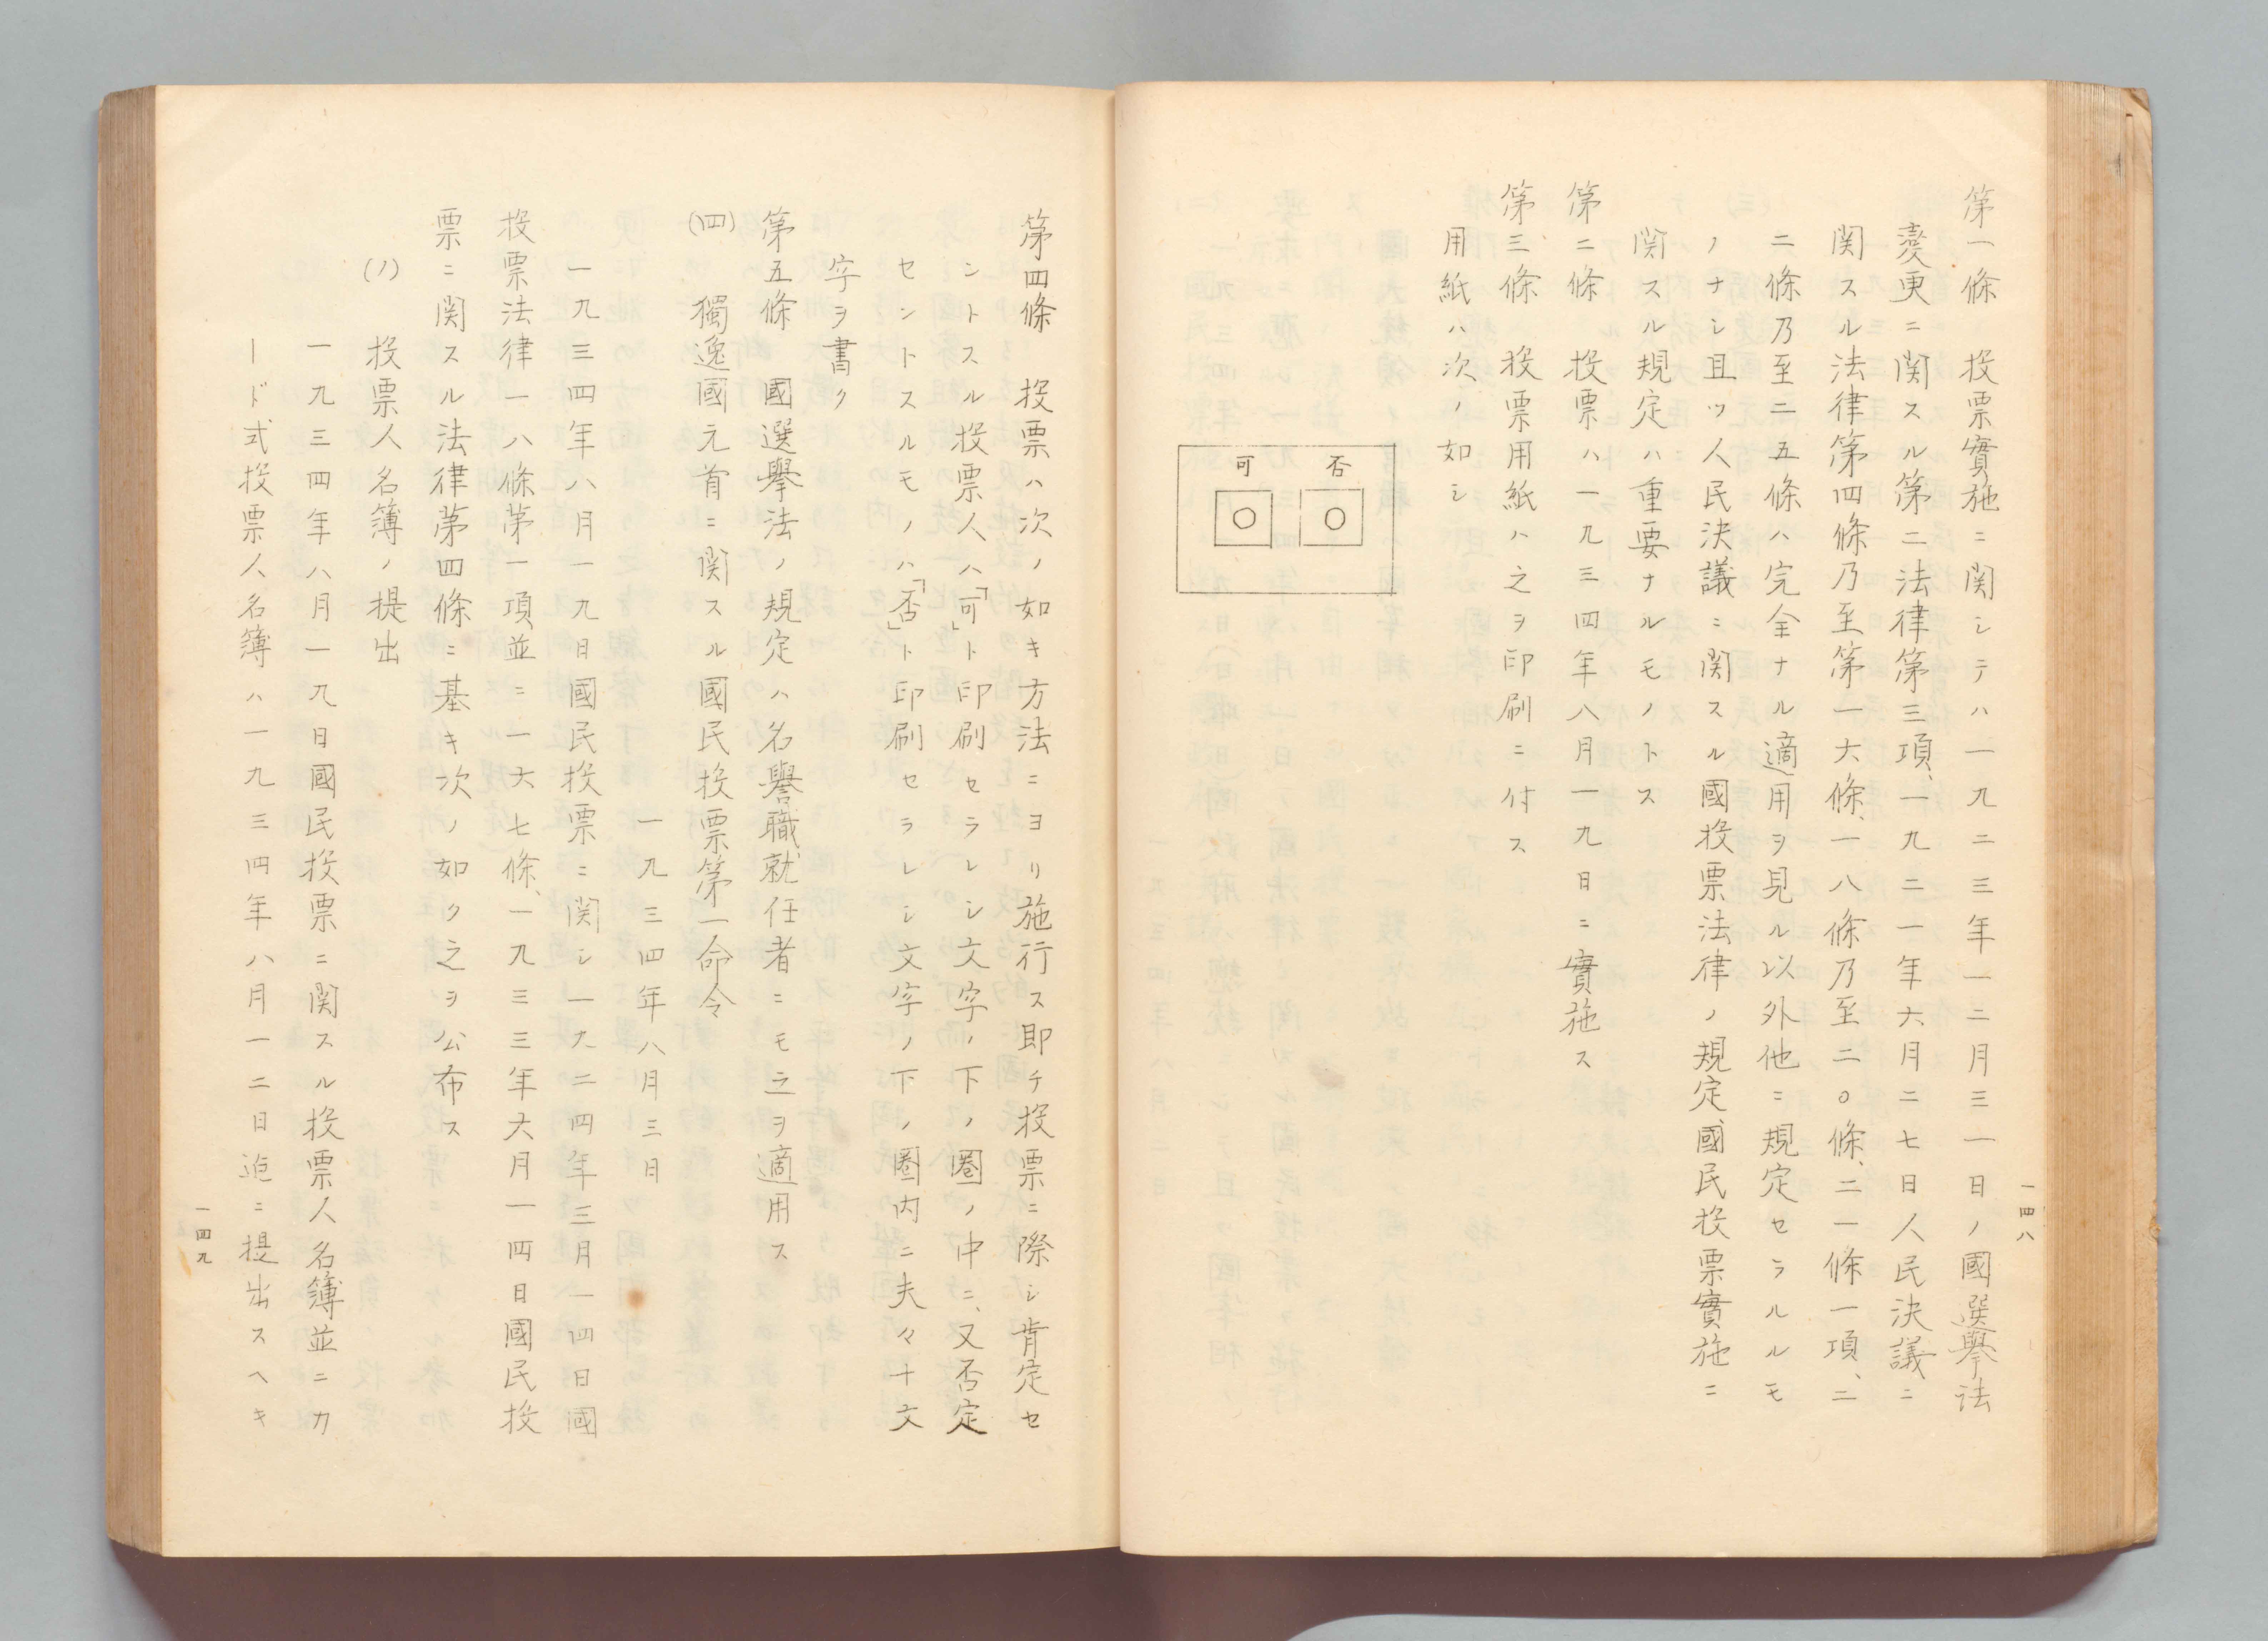 一四八
第一條　投票實施ニ関シテハ一九二三年一二月三一日ノ國選擧法
変更ニ関スル第二法律第三項、一九二一年六月二七日人民決議ニ
関スル法律第四條乃至第一六條、一八條乃至二〇條、二一條一項、二
二條乃至二五條ハ完全ナル適用ヲ見ル以外他ニ規定セラルルモ
ノナシ且ツ人民決議ニ関スル國投票法律ノ規定、國民投票實施ニ
関スル規定ハ重要ナルモノトス
第二條　投票ハ一九三四年八月一九日ニ實施ス
第三條　投票用紙ハ之ヲ印刷ニ付ス
用紙ハ次ノ如シ
否
可
第四條　投票ハ次ノ如キ方法ニヨリ施行ス即チ投票ニ際シ肯定セ
ントスル投票人ハ「可」ト印刷セラレシ文字ノ下ノ圏ノ中ニ、又否定
セントスルモノハ「否」ト印刷セラレシ文字ノ下ノ圏内ニ夫々十文
字ヲ書ク
第五條　國選擧法ノ規定ハ名譽職就任者ニモ之ヲ適用ス
(四)　獨逸國元首ニ関スル國民投票第一命令
一九三四年八月三日
一九三四年八月一九日國民投票ニ関シ一九二四年三月一四日國
投票法律一八條第一項、並ニ一六七條、一九三三年六月一四日國民投
票ニ関スル法律第四條ニ基キ次ノ如ク之ヲ公布ス
(ノ)　投票人名簿ノ提出
一九三四年八月一九日國民投票ニ関スル投票人名簿並ニカ
ード式投票人名簿ハ一九三四年八月一二日迄ニ提出スヘキ
一四九